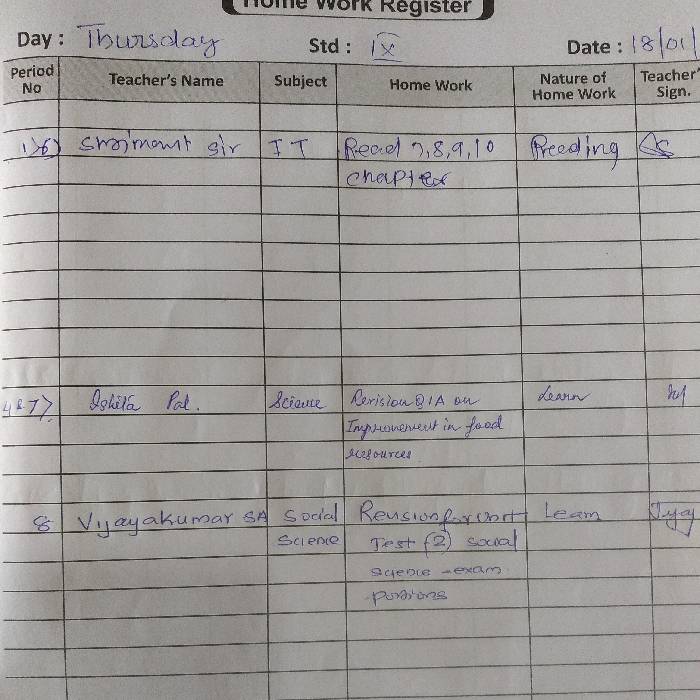 Home Work Register
Day : Thursday Std : IX Date : 18/01/
Period No Teacher's Name Subject Home Work Nature of Home Work Teacher' Sign.
sir IT Read 7,8,9,10 Reeding
chapter
4 & 7> Ishita Pal. Science Revision Q/A on Learn
Improvement in food
resources
8 Vijayakumar SA Social Revision for unit Learn
Science Test (2) social
science - exam
portions